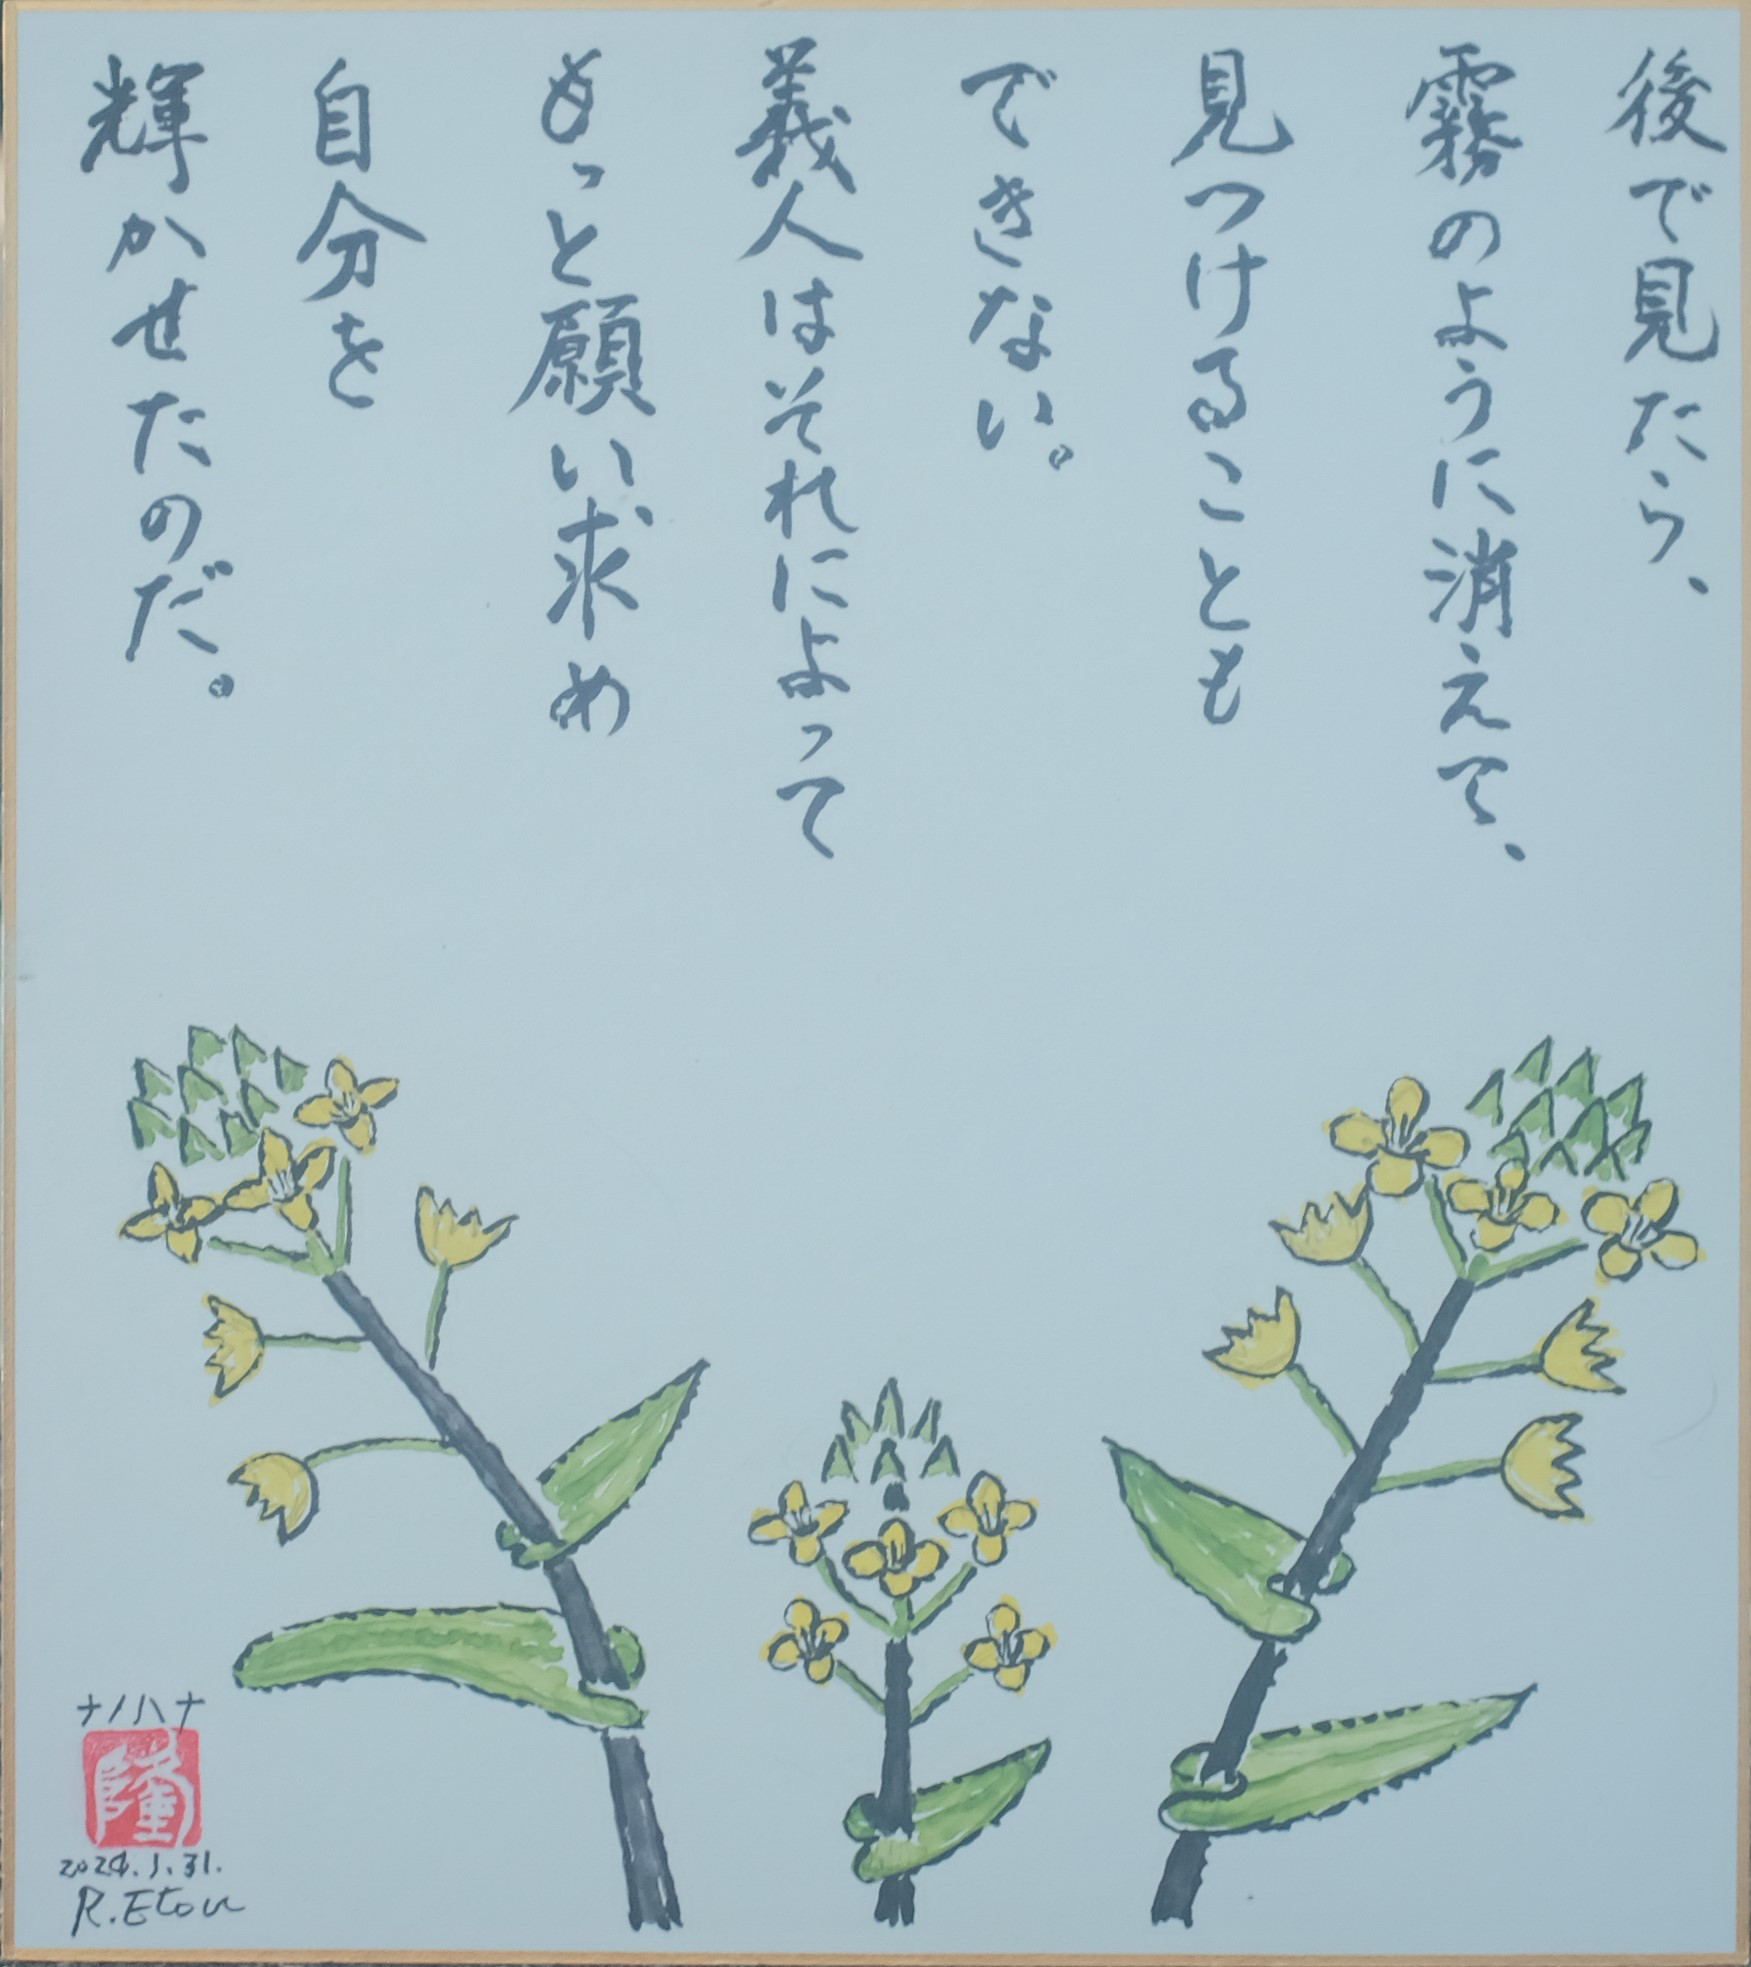 後で見たら、
霧のように消えて、
見つけることも
できない。
義人はそれによって
もっと願い求め
自分を
輝かせたのだ。
ナノハナ
隆
2024.1.31.
R.Etou